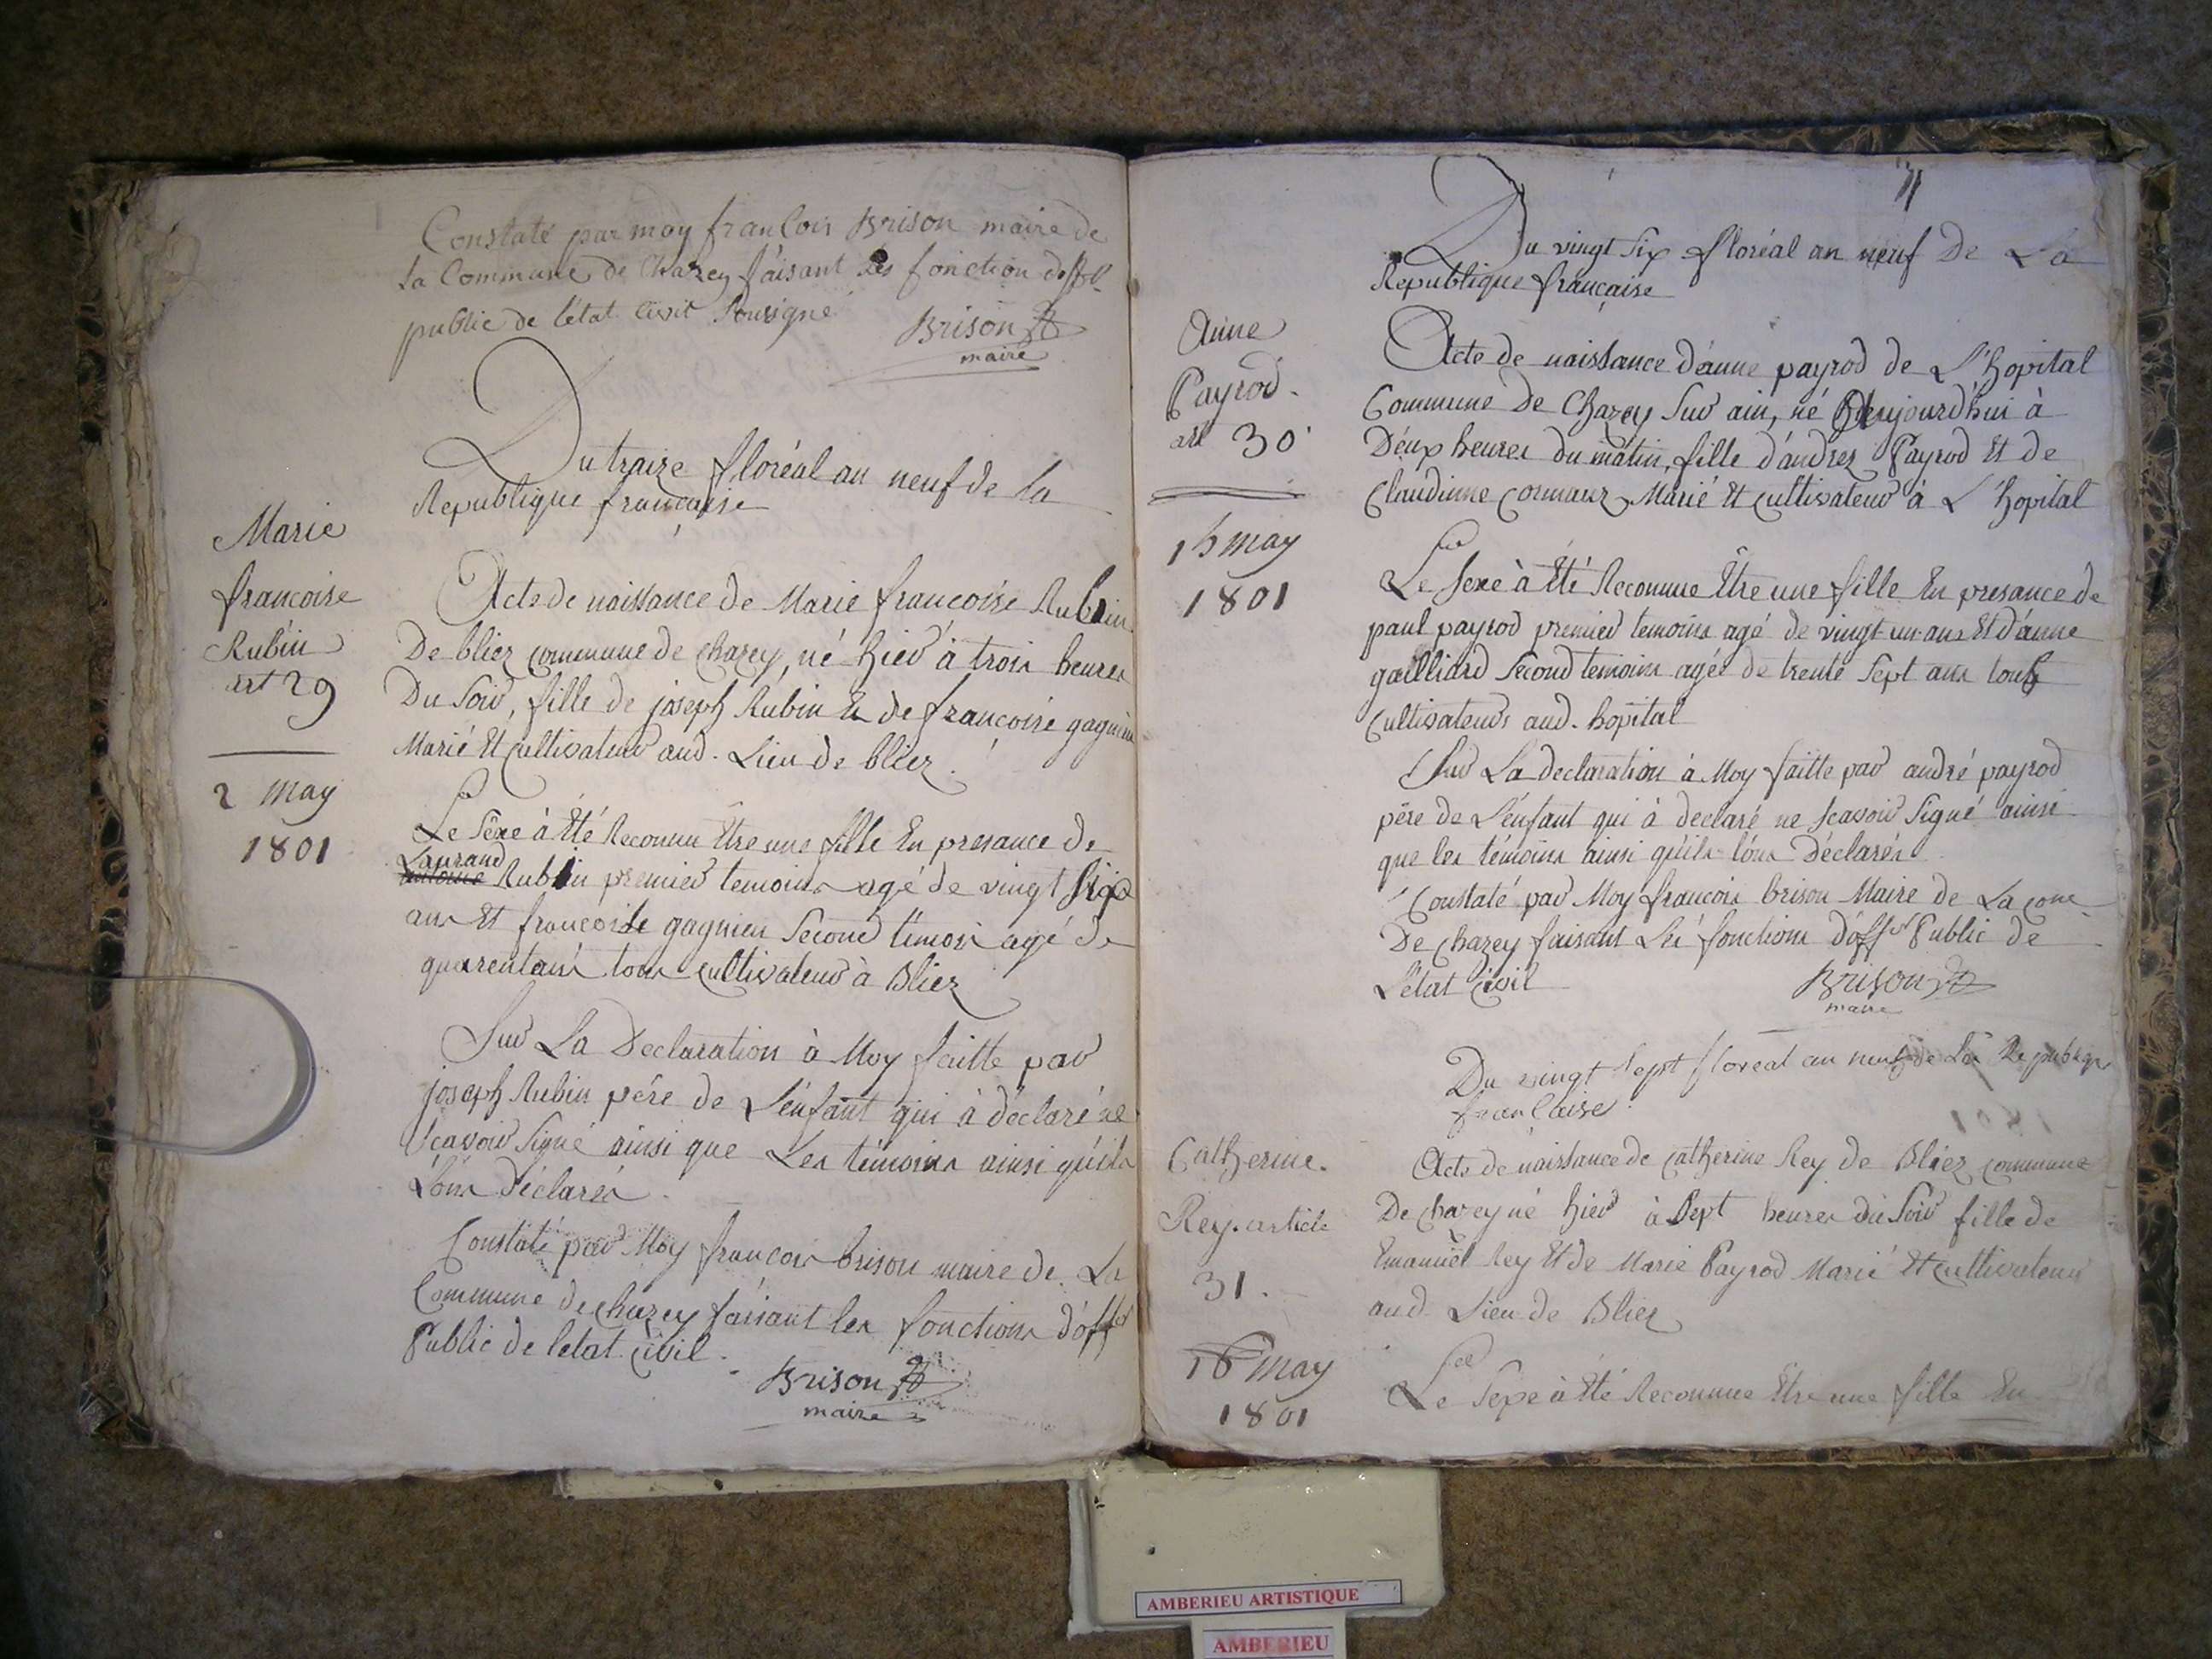 Constaté par moy franCois Brison maire de
la Commune de Chazey faisant les fonction doffer
public de l'état Civit Sousigné
Brison
maire
Du traize floréal an neuf de la
Republique française
Marie
francoise
Rubin
art 29
2 may
1801
Acte de naissance de Marie francoise Rubin
De bliez commune de chazey, né hier à trois heures
Du Soir, fille de joseph Rubin Et de françoise gagnieu
Marié Et Cultivateur aud. Lieu de bliez.
Le Sexe à Eté Reconnu Etre une fille En presance de
Laurand
antoine Rubin premier temoins agé de vingt Six
ans Et francoise gagnieu Second témoin agé de
quarentans tous cultivateur à Bliez
Sur La Declaration à Moy faitte par
joseph Rubin pére de L'énfant qui à déclaré ne
Scavoir Signé ainsi que Les témoins ainsi qu'ils
l'ons déclarés.
Constaté par Moy francois brison maire de La
Commune de chazey faisant les fonctions d'offer
Public de letat civil.
Brison
maire
Du vingt Six floréal an neuf De La
Republique française
Anne
Payrod.
art 30
16 may
1801
Acte de naissance d'anne payrod de L'hopital
Commune De Chazey Sur ain, né Aujourd'hui à
Déux heures du matin, fille d'andrez Payrod Et de
Claudinne Cormanz Marié Et Cultivateur à L'hopital
Le Sexe à Eté Reconnue Être une fille En presance de
paul payrod premier temoins agé de vingt un ans Et d'anne
gailliard Second temoins agée de trente Sept ans tous
Cultivateurs aud. hopital
Sur La declaration à Moy faitte par andré payrod
pére de L'énfant qui à declaré ne Scavoir Signé ainsi
que les témoins ainsi qu'ils l'ons Déclarés
Constaté par Moy francois brison Maire de La Come
De chazey faisant Les fonctions d'offer Public de
L'état Civil
Brison
maire
Du vingt Sept floreal an neuf de La Republique
franCaise
Catherine.
Rey. article
31.
16 may
1801
Acte de naissance de Catherine Rey de Bliez commune
De chazey né hier à Sept heures du Soir fille de
Emanuël Rey Et de Marie Payrod Marié Et Cultivateur
aud. Lieu de Bliez
Le Sexe à Eté Reconnue Etre une fille En
AMBERIEU ARTISTIQUE
AMBERIEU